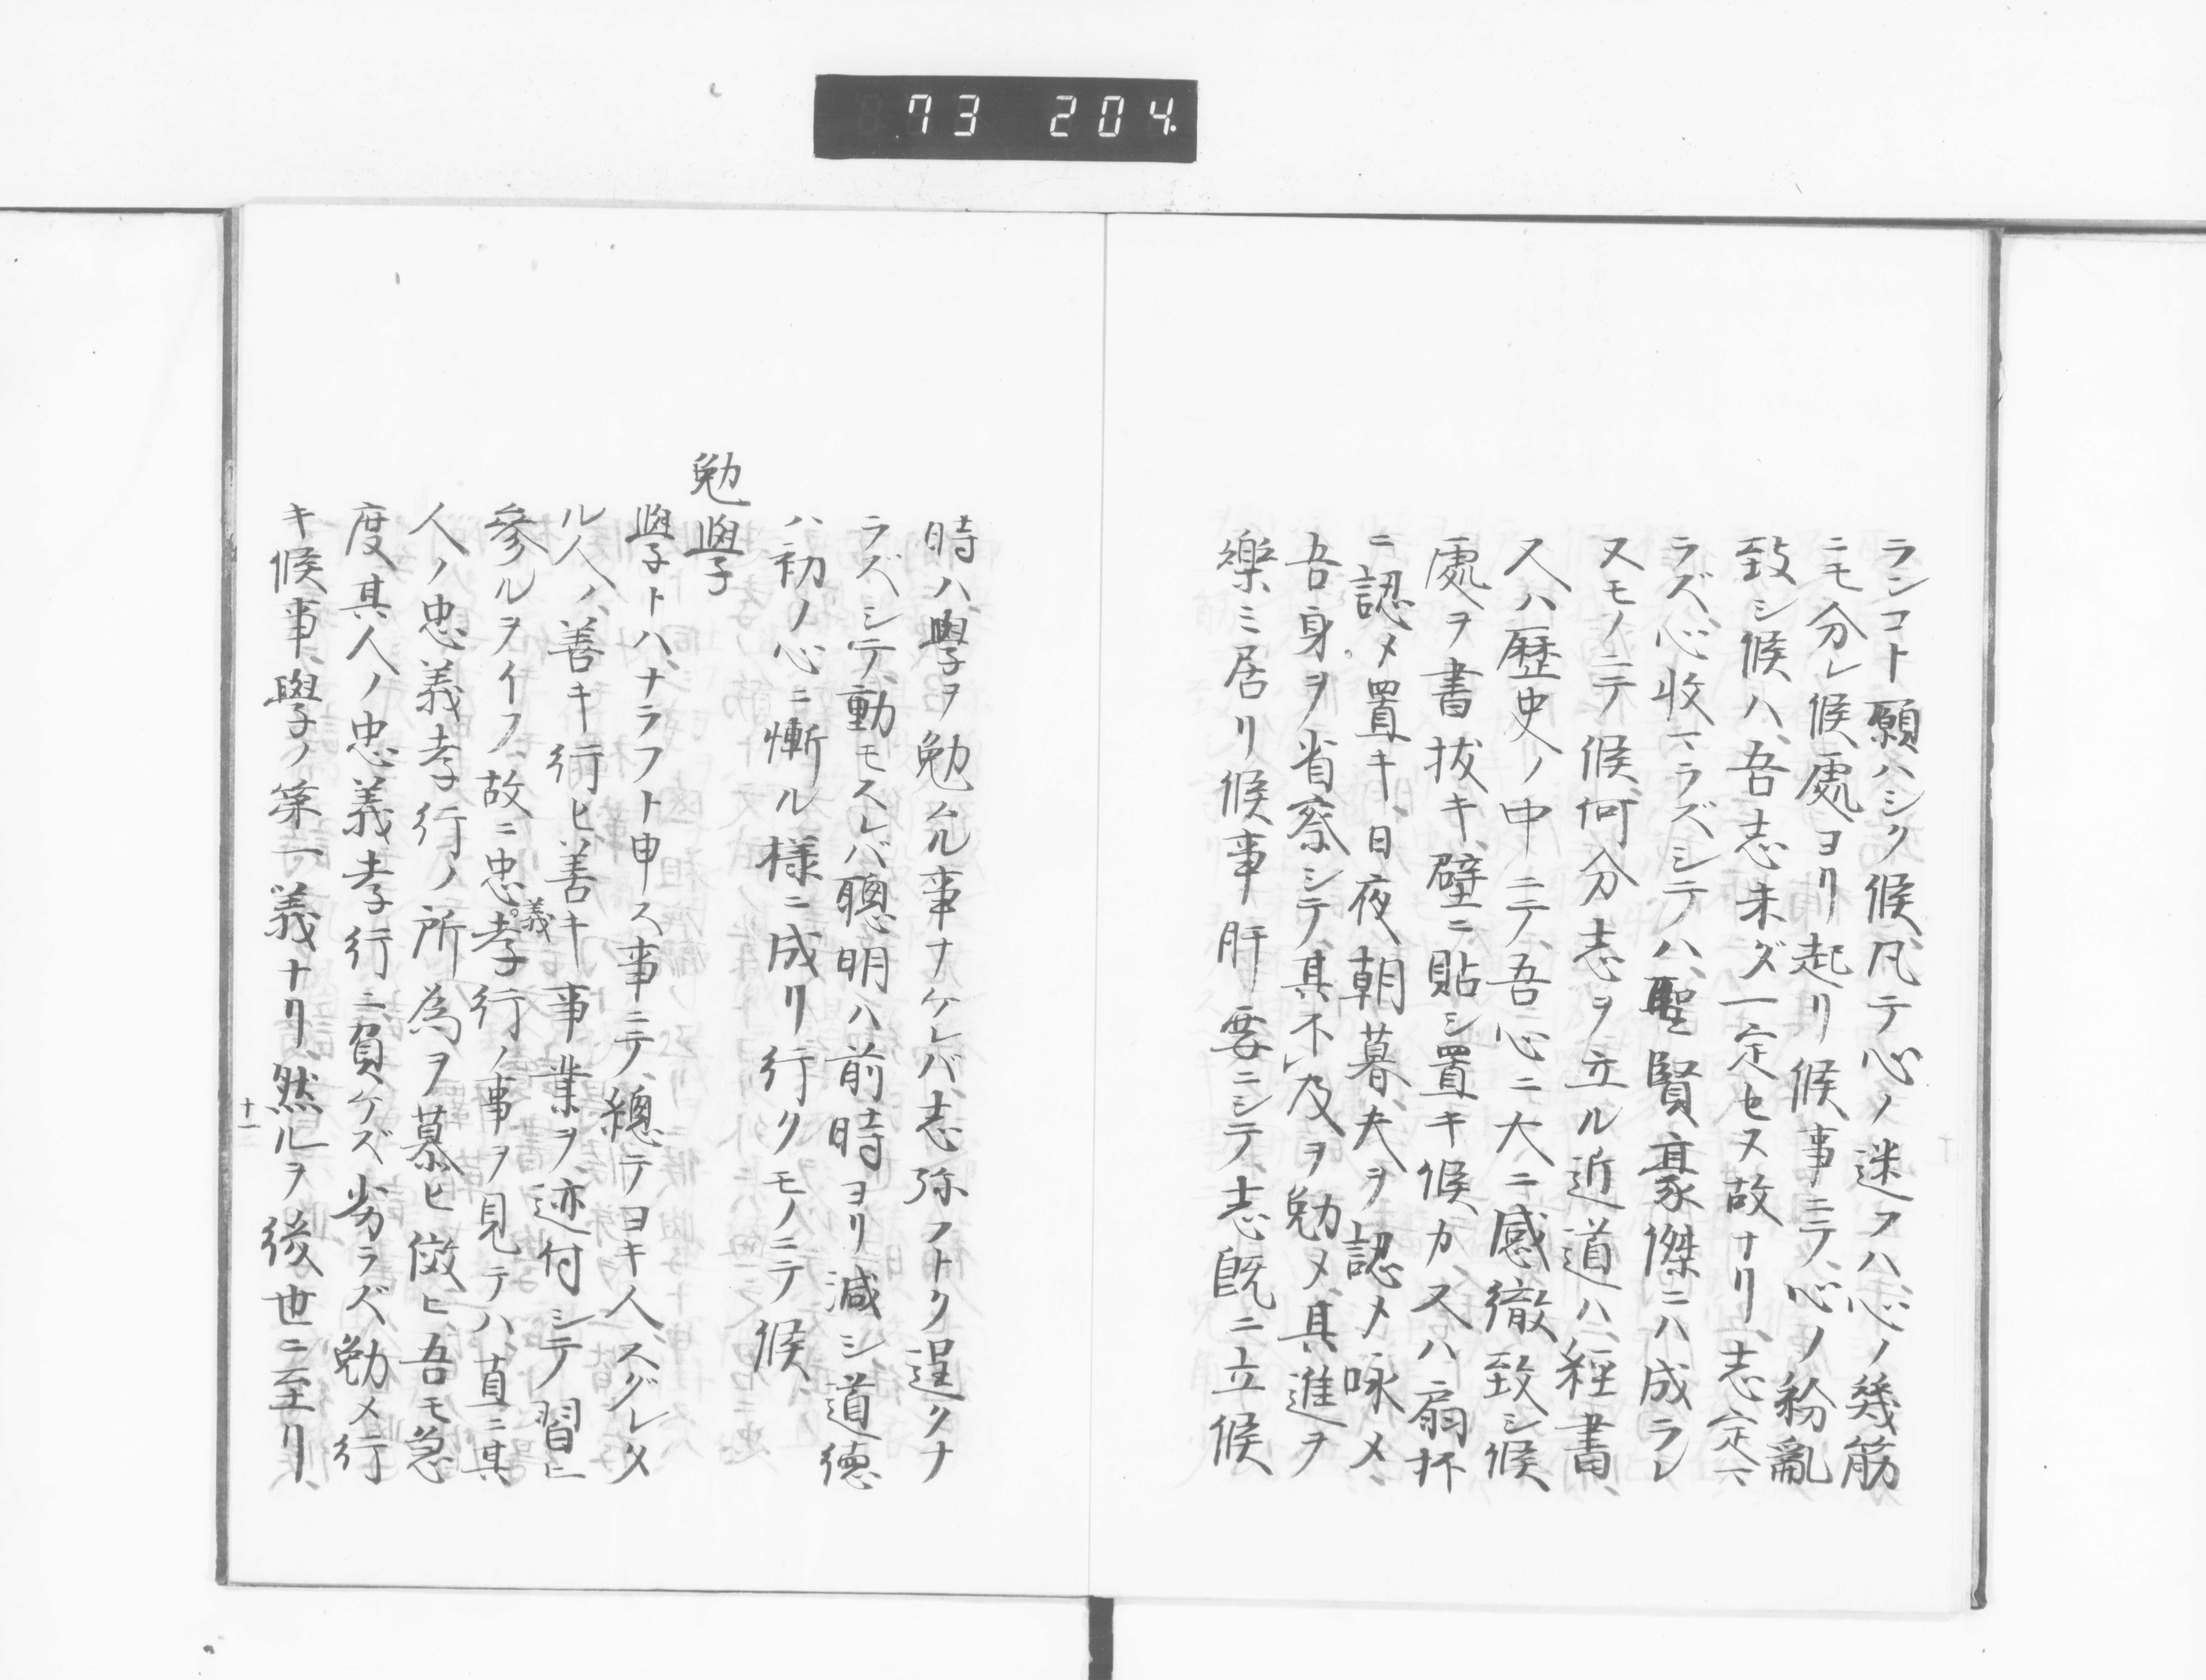 73 204
ランコト願ハシク候凡テ心ノ迷フハ心ノ幾筋
ニモ分レ候處ヨリ起リ候事ニテ、心ノ紛亂
致シ候ハ、吾志未ダ一定セヌ故ナリ、志定マ
ラズ、心收マラズシテハ、聖賢豪傑ニハ成ラレ
ヌモノニテ候、何分志ヲ立ル近道ハ、經書、
又ハ歷史ノ中ニテ、吾心ニ大ニ感徹致シ候
處ヲ書拔キ、壁ニ貼シ置キ候カ、又ハ扇抔
ニ認メ置キ、日夜朝暮、夫ヲ認メ咏メ、
吾身ヲ省察シテ、其不及ヲ勉メ、其進ヲ
樂ミ居リ候事肝要ニシテ、志既ニ立候
時ハ、學ヲ勉ル事ナケレバ、志弥フトク逞クナ
ラズシテ、動モスレバ聰明ハ前時ヨリ減シ道德
ハ初ノ心ニ慚ル樣ニ成リ行クモノニテ候、
勉學
學トハ、ナラフト申ス事ニテ、總テヨキ人スグレタ
ル人ノ、善キ行ヒ善キ事業ヲ、迹付シテ習ヒ
參ルヲイフ、故ニ忠義孝行ノ事ヲ見テハ、直ニ其
人ノ忠義孝行ノ所為ヲ慕ヒ傚ヒ、吾モ急
度其人ノ忠義孝行ニ、負ケズ劣ラズ、勉メ行
キ候事、學ノ第一義ナリ、然ルヲ後世ニ至リ、
十一